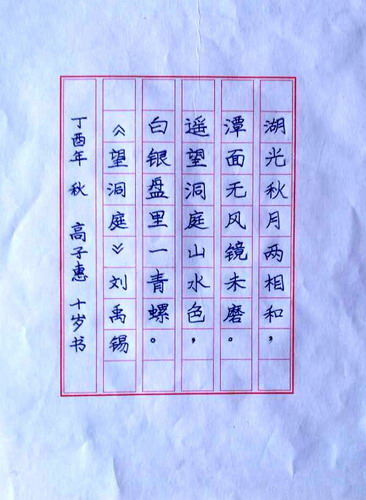 湖光秋月两相和，
潭面无风镜未磨。
遥望洞庭山水色，
白银盘里一青螺。
《望洞庭》刘禹锡
丁酉年 秋 高子惠 十岁书